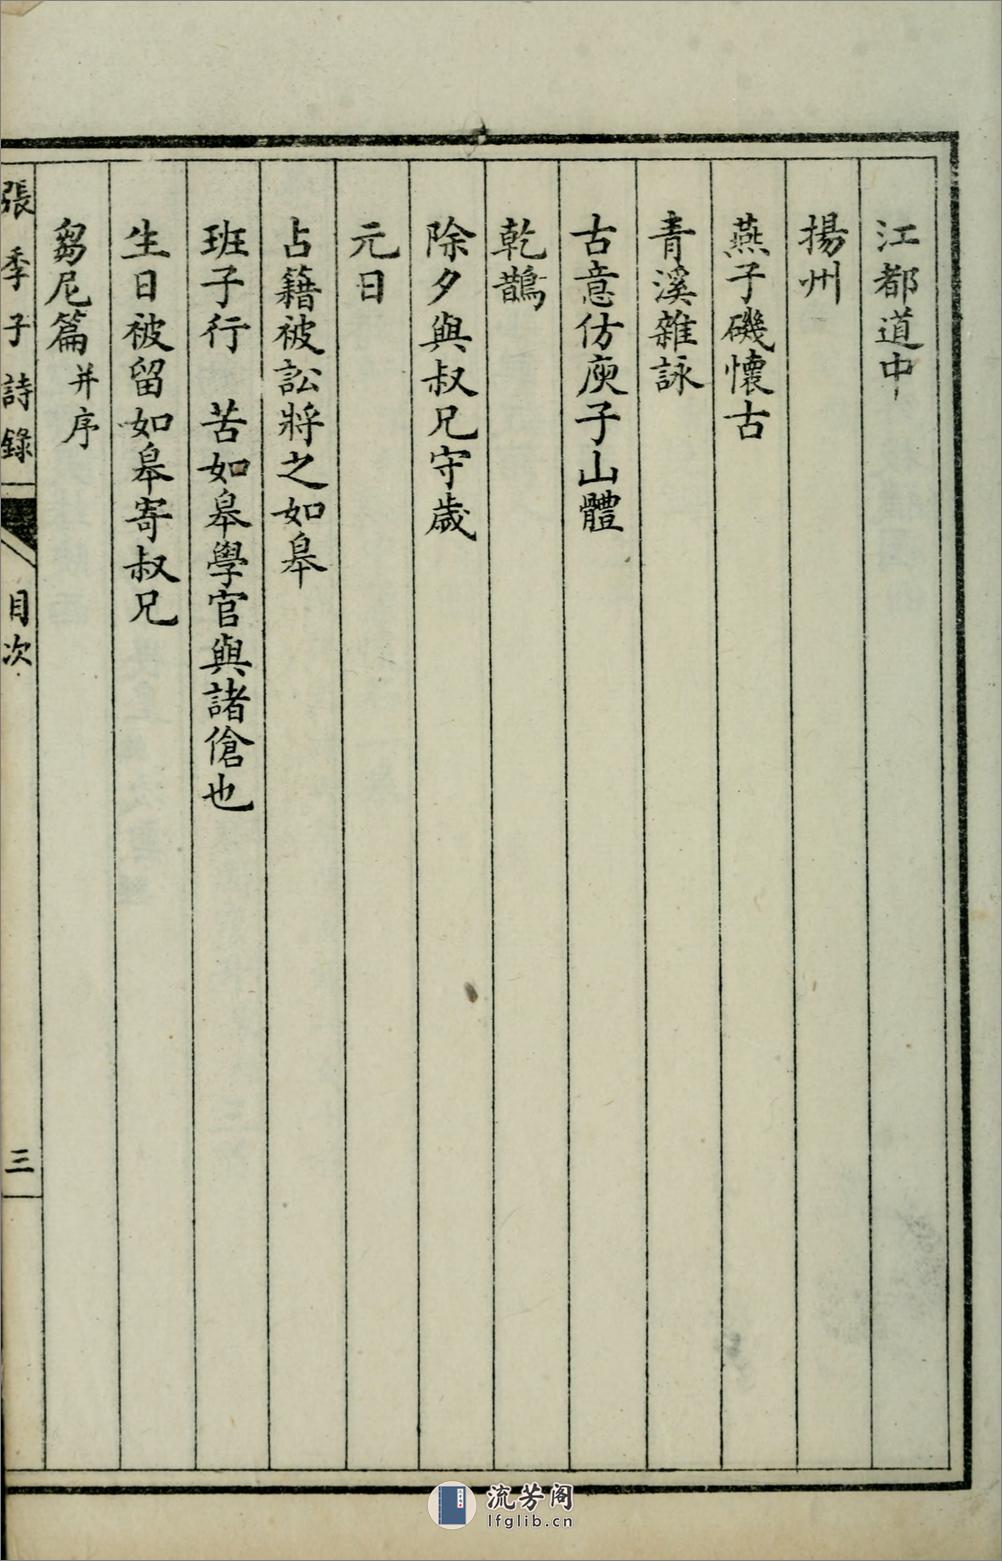 江都道中
揚州
燕子磯懷古
青溪雜詠
古意仿庾子山體
乾鵲
除夕與叔兄守歲
元日
占籍被訟將之如皋
班子行　苦如皋學官與諸傖也
生日被留如皋寄叔兄
芻尼篇并序
張季子詩錄　目次　三
流芳阁
lfglib.cn